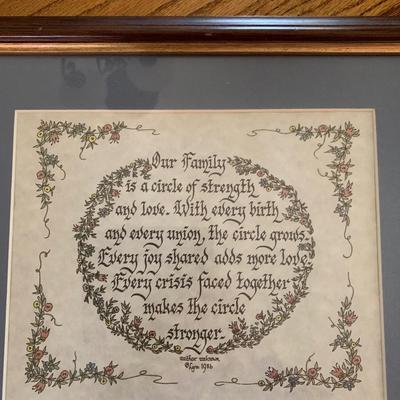 Our Family
is a circle of strength
and love. With every birth
and every union, the circle grows.
Every joy shared adds more love.
Every crisis faced together
makes the circle
stronger.
author unknown
1986